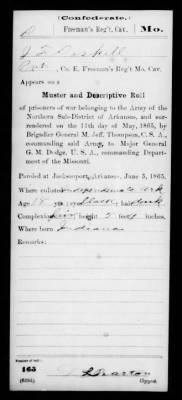 Confederate.
Freeman's Reg't, Cav. Mo.
Pvt., Co. E, Freeman's Reg't Mo. Cav.
Appears on a
Muster and Descriptive Roll
of prisoners of war belonging to the Army of the
Northern Sub-District of Arkansas, and sur-
rendered on the 11th day of May, 1865, by
Brigadier General M. Jeff. Thompson, C. S. A.,
commanding said Army, to Major General
G. M. Dodge, U. S. A., commanding Depart-
ment of the Missouri.
Paroled at Jacksonport, Arkansas, June 5, 1865.
Where enlisted Independence Ark
Age 18 ; eyes ; hair dark
Complexion fair height 5 feet inches.
Where born Indiana
Remarks:
Number of roll:
165
Copyist.